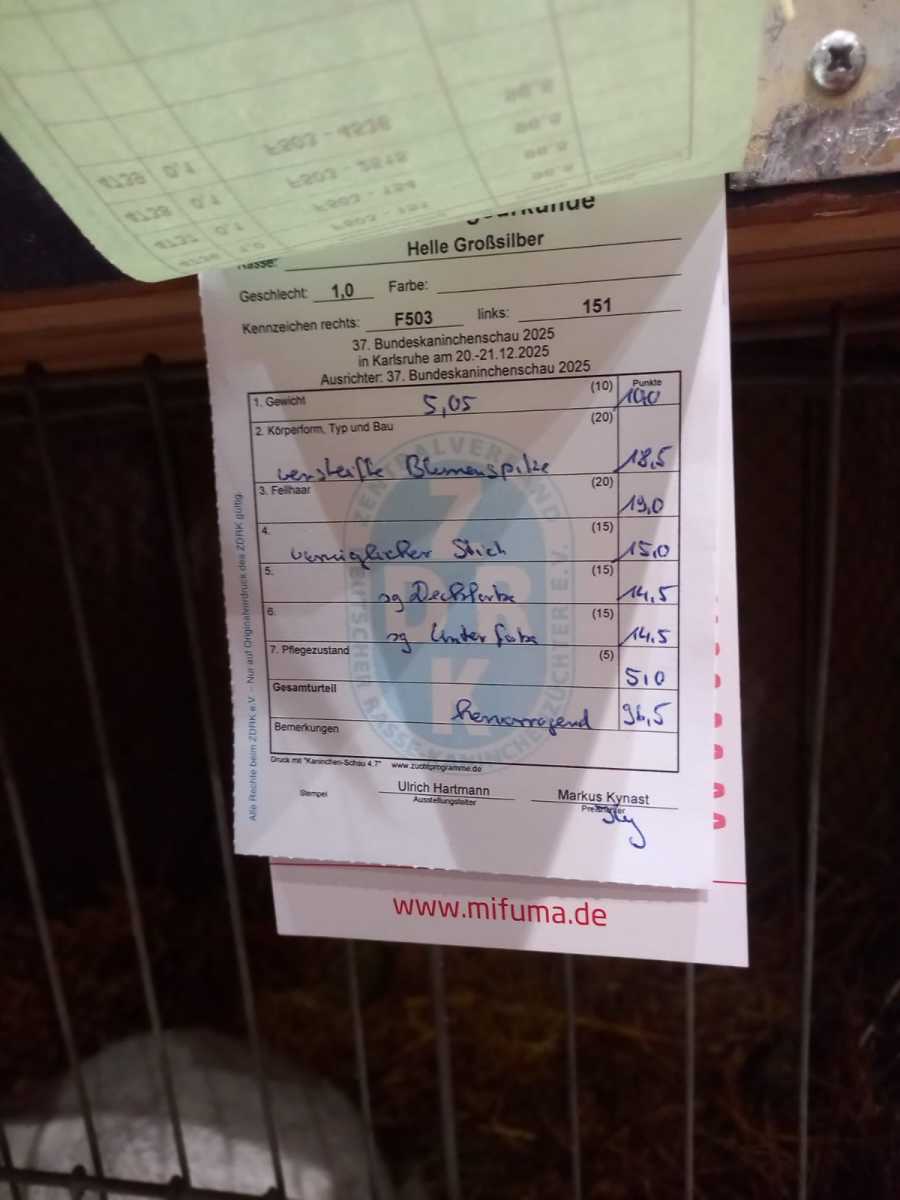 4136 0.1 F503 - 4536 96.5
4138 0.1 F503 - 2812 96.5
4139 0.1 F503 - 154 96.5
Rasse: Helle Großsilber
Geschlecht: 1,0 Farbe:
Kennzeichen rechts: F503 links: 151
37. Bundeskaninchenschau 2025
in Karlsruhe am 20.-21.12.2025
Ausrichter: 37. Bundeskaninchenschau 2025
1. Gewicht 5,05 (10) Punkte 10,0
2. Körperform, Typ und Bau (20)
versteifte Blumenspitze 18,5
3. Fellhaar (20) 19,0
4. (15)
vorzüglicher Stich 15,0
5. (15)
sg Deckfarbe 14,5
6. (15)
sg Unterfarbe 14,5
7. Pflegezustand (5) 5,0
Gesamturteil hervorragend 96,5
Bemerkungen
Druck mit "Kaninchen-Schau 4.7" www.zuchtprogramme.de
Stempel
Ulrich Hartmann
Ausstellungsleiter
Markus Kynast
Preisrichter
Alle Rechte beim ZDRK e.V. – Nur auf Originalvordruck des ZDRK gültig.
ZENTRALVERBAND DEUTSCHER RASSE-KANINCHENZÜCHTER E.V.
ZDRK
www.mifuma.de